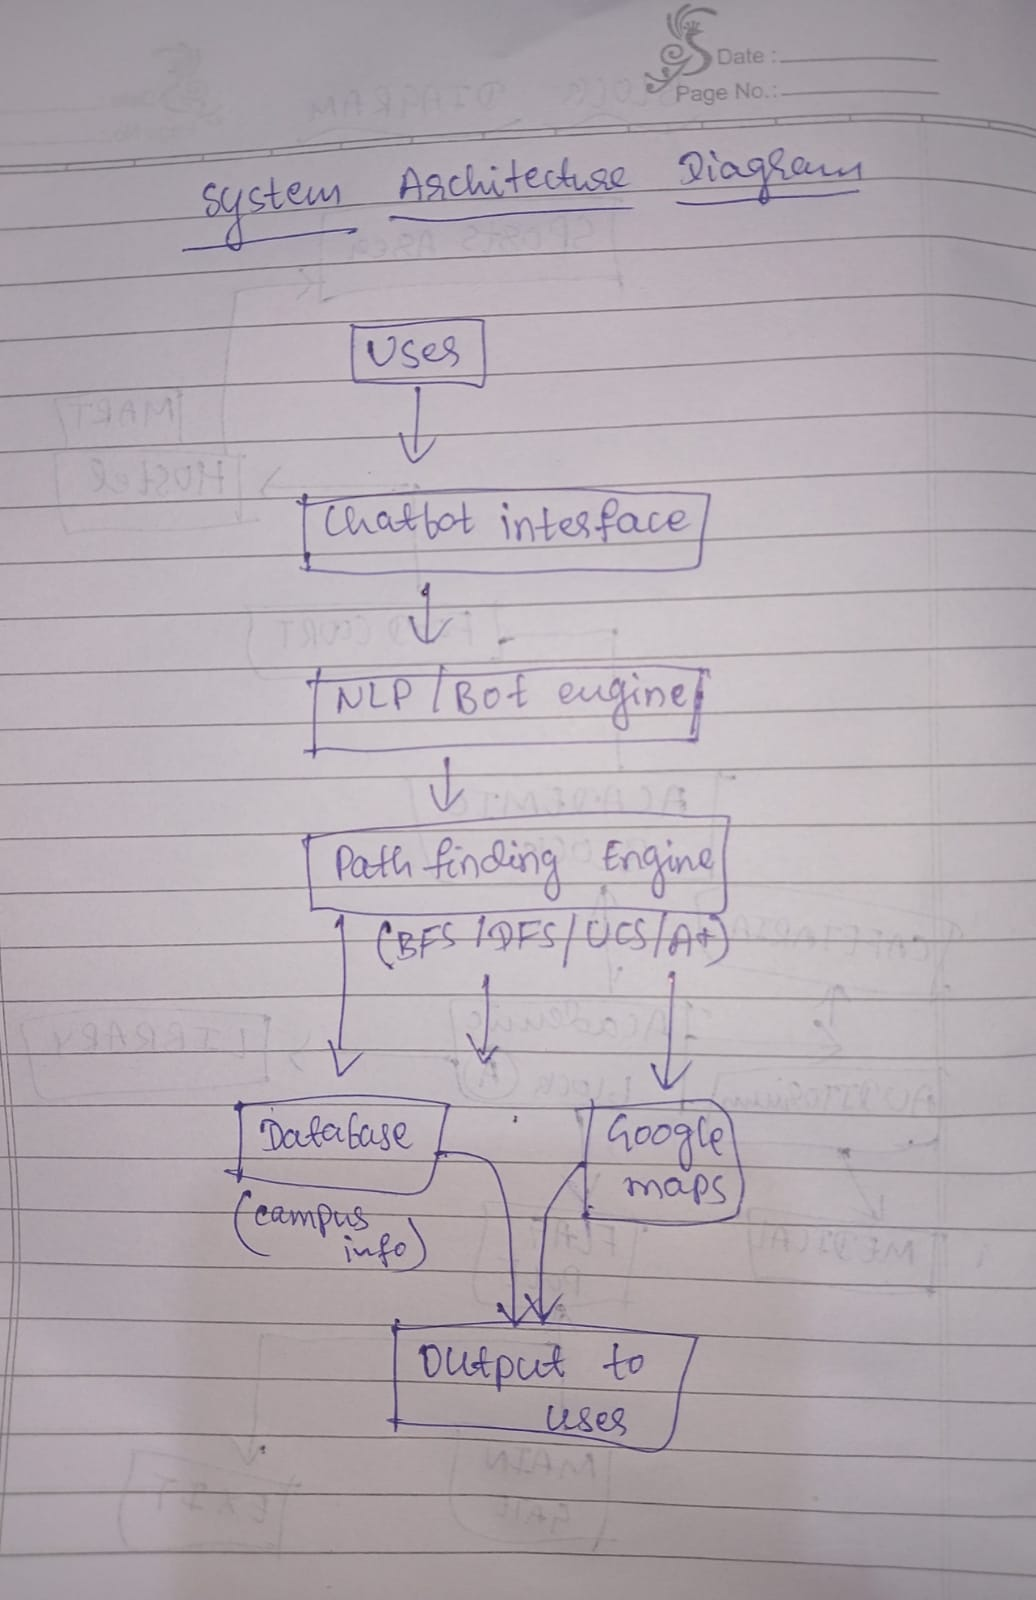 Date :
Page No.:
System Architecture Diagram
User
Chatbot interface
NLP / Bot engine
Path finding Engine
(BFS / DFS / UCS / A*)
Database
Google
maps
(campus
info)
Output to
user